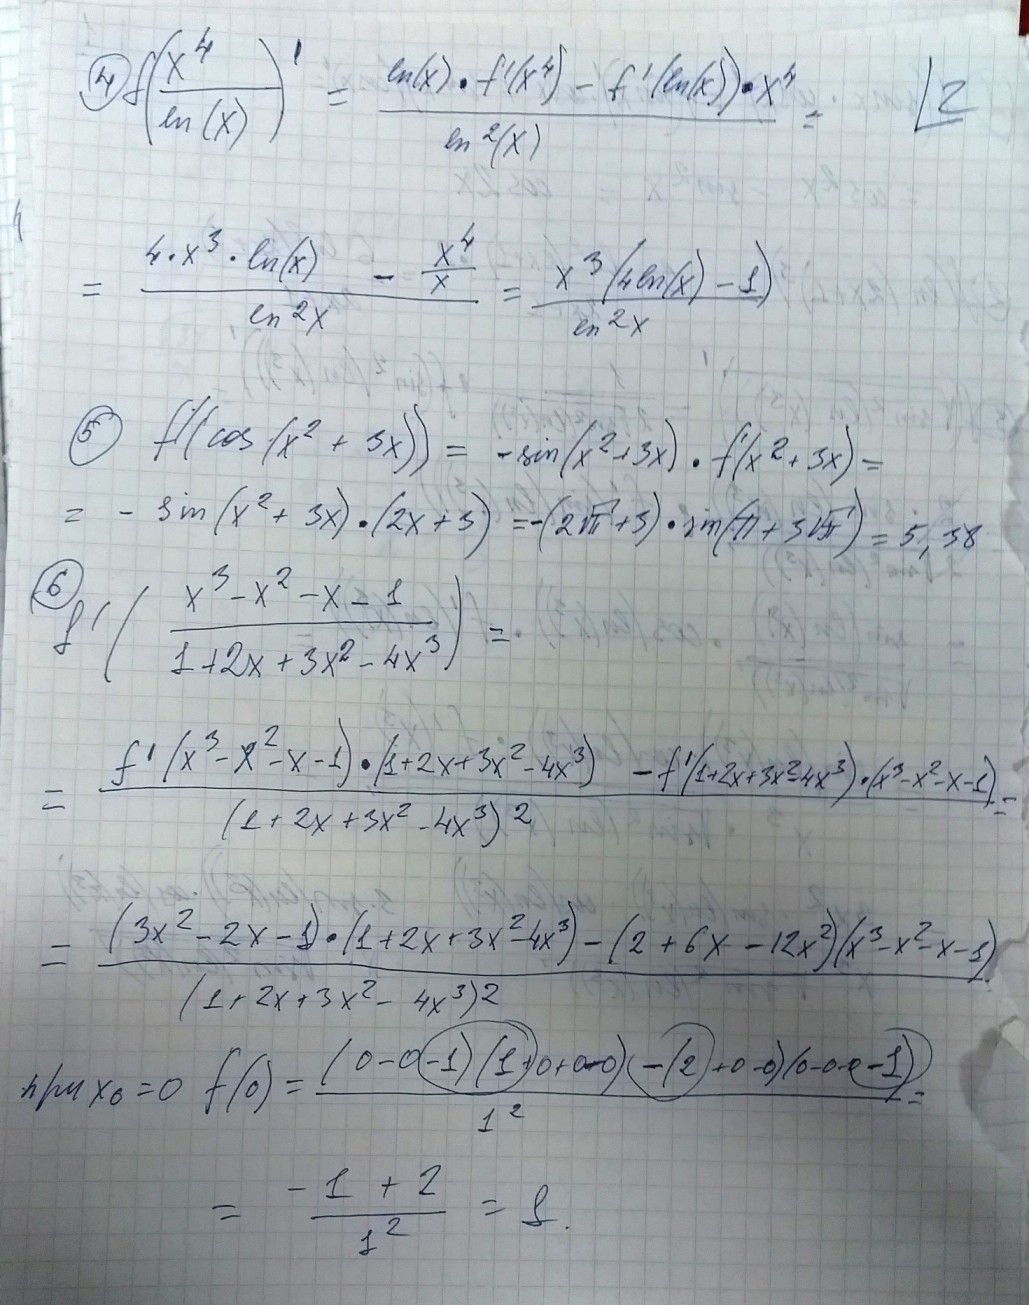 ④ f(x⁴/ln(x))' = (ln(x)·f'(x⁴) - f'(ln(x))·x⁴)/ln²(x) =
2
= (4·x³·ln(x) - x⁴/x)/ln²x = x³(4ln(x) - 1)/ln²x
⑤ f'(cos(x² + 3x)) = -sin(x²+3x)·f'(x²+3x) =
= - sin(x² + 3x)·(2x + 3) = -(2√π+3)·sin(π + 3√π) = 5,38
⑥ f'((x³ - x² - x - 1)/(1+2x+3x² - 4x³)) =
= (f'(x³ - x² - x - 1)·(1+2x+3x² - 4x³) - f'(1+2x+3x²-4x³)·(x³-x²-x-1))/(1+2x+3x²-4x³)² =
= ((3x² - 2x - 1)·(1+2x+3x²-4x³) - (2+6x-12x²)(x³-x²-x-1))/(1+2x+3x²- 4x³)²
при x₀ = 0 f(0) = ((0-0-1)(1+0+0-0) - (2+0-0)(0-0-0-1))/1² =
= (-1 + 2)/1² = 1.